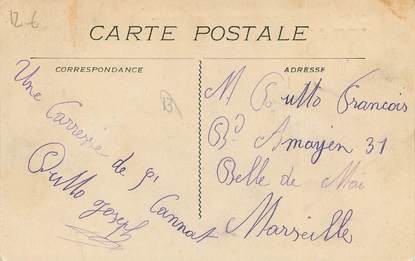 12-6
CARTE POSTALE
CORRESPONDANCE
ADRESSE
Une Carresse
de St Cannat
Putto Joseph
M Putto Francois
Bd Amayen 31
Belle de Mai
Marseille